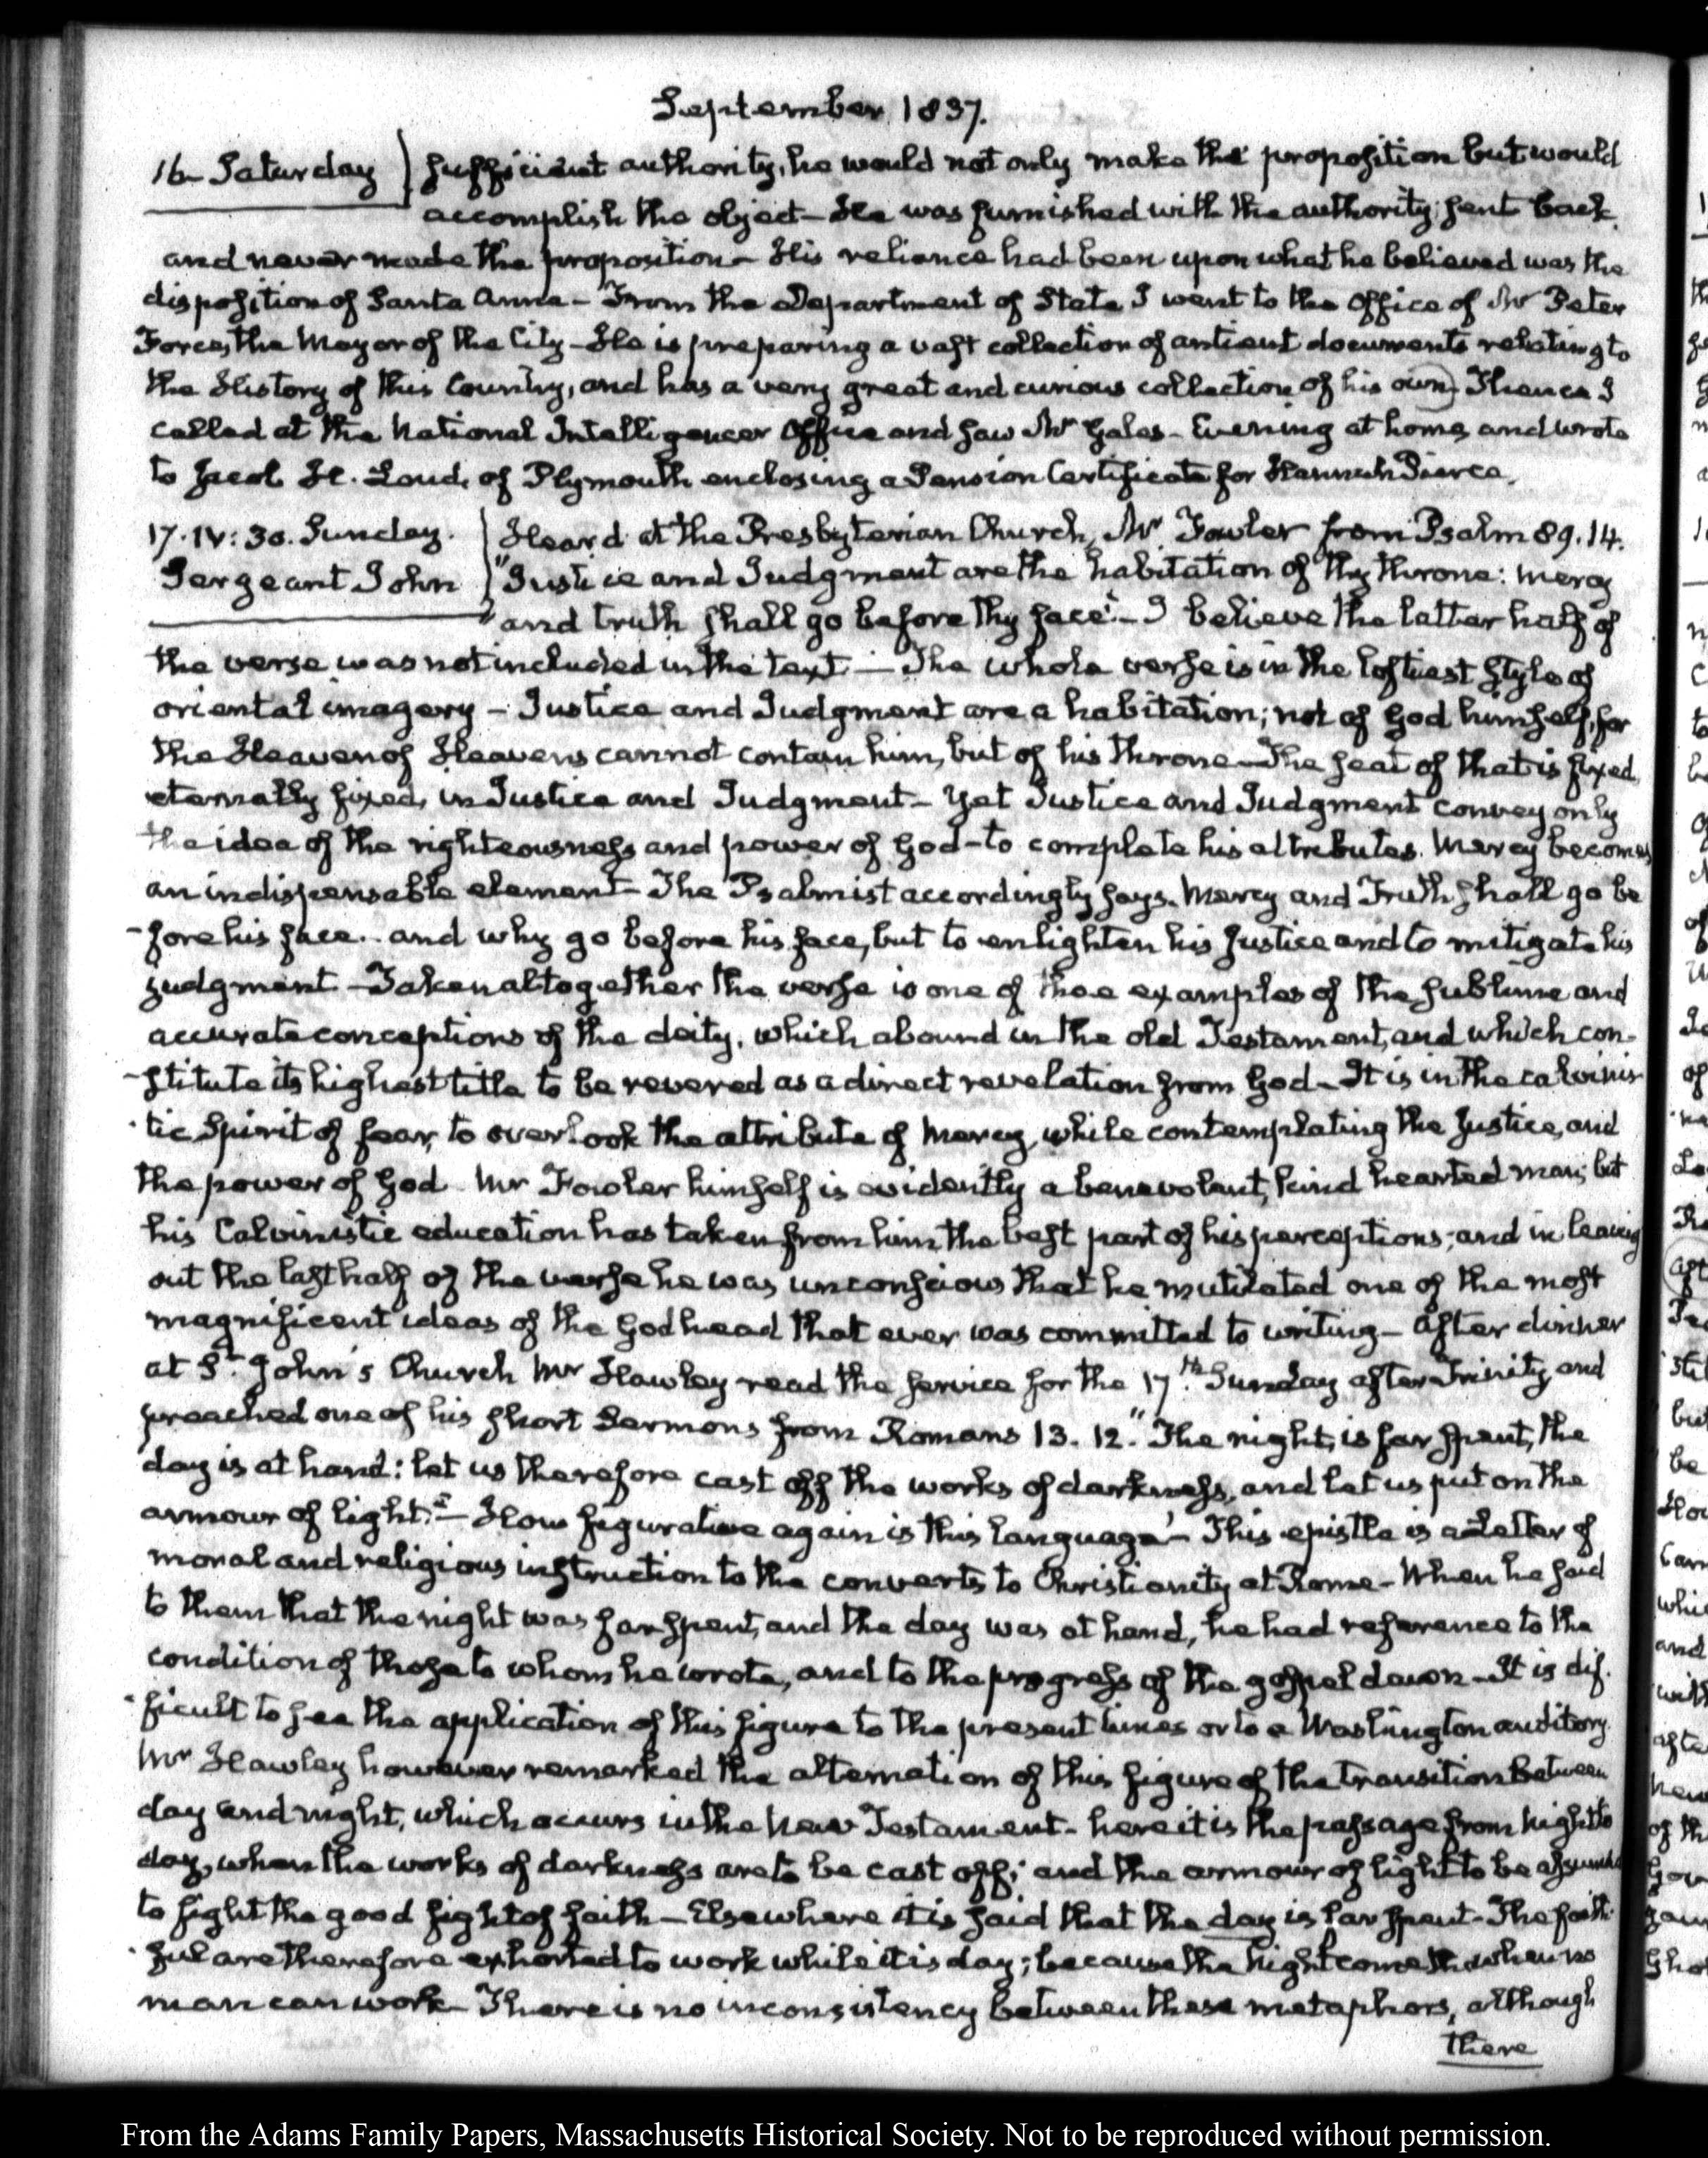 September 1837.
16 Saturday
sufficient authority, he would not only make the proposition but would
accomplish the object — He was furnished with the authority, sent back
and never made the proposition — His reliance had been upon what he believed was the
disposition of Santa Anna — From the Department of State I went to the Office of Mr Peter
Force, the Mayor of the City — He is preparing a vast collection of antient documents relating to
the History of this Country, and has a very great and curious collection of his own. Thence I
called at the National Intelligencer Office and saw Mr Gales — Evening at home, and wrote
to Jacob H. Loud, of Plymouth enclosing a Pension Certificate for Hannah Pierce.
17. IV: 30. Sunday.
Sergeant John
Heard at the Presbyterian Church, Mr Fowler from Psalm 89. 14.
"Justice and Judgment are the habitation of thy throne: mercy
and truth shall go before thy face" — I believe the latter half of
the verse was not included in the text — The whole verse is in the loftiest style of
oriental imagery — Justice and Judgment are a habitation; not of God himself, for
the Heaven of Heavens cannot contain him, but of his throne — The seat of that is fixed,
eternally fixed, in Justice and Judgment — Yet Justice and Judgment convey only
the idea of the righteousness and power of God — to complete his attributes. Mercy becomes
an indispensable element — The Psalmist accordingly says. Mercy and Truth shall go be
-fore his face. and why go before his face, but to enlighten his justice and to mitigate his
judgment — Taken altogether the verse is one of those examples of the sublime and
accurate conceptions of the deity, which abound in the old Testament, and which con-
-stitute its highest title to be revered as a direct revelation from God — It is in the calvinis-
-tic Spirit of fear, to overlook the attribute of Mercy, while contemplating the justice, and
the power of God. Mr Fowler himself is evidently a benevolent, kind hearted man; but
his Calvinistic education has taken from him the best part of his perceptions; and in leaving
out the last half of the verse he was unconscious that he mutilated one of the most
magnificent ideas of the Godhead that ever was committed to writing — After dinner
at St. John's Church Mr Hawley read the service for the 17th. Sunday after Trinity, and
preached one of his short Sermons from Romans 13. 12. "The night is far spent, the
day is at hand: let us therefore cast off the works of darkness, and let us put on the
armour of light." — How figurative again is this language! — This epistle is a Letter of
moral and religious instruction to the converts to Christianity at Rome — When he said
to them that the night was far spent, and the day was at hand, he had reference to the
condition of those to whom he wrote, and to the progress of the gospel dawn — It is dif-
-ficult to see the application of this figure to the present times or to a Washington auditory.
Mr Hawley however remarked the alternation of this figure of the transition between
day and night, which occurs in the New Testament — here it is the passage from night to
day, when the works of darkness are to be cast off; and the armour of light to be assumed
to fight the good fight of faith — Elsewhere it is said that the day is far spent — The faith-
-ful are therefore exhorted to work while it is day; because the night cometh when no
man can work — There is no inconsistency between these metaphors, although
there
From the Adams Family Papers, Massachusetts Historical Society. Not to be reproduced without permission.